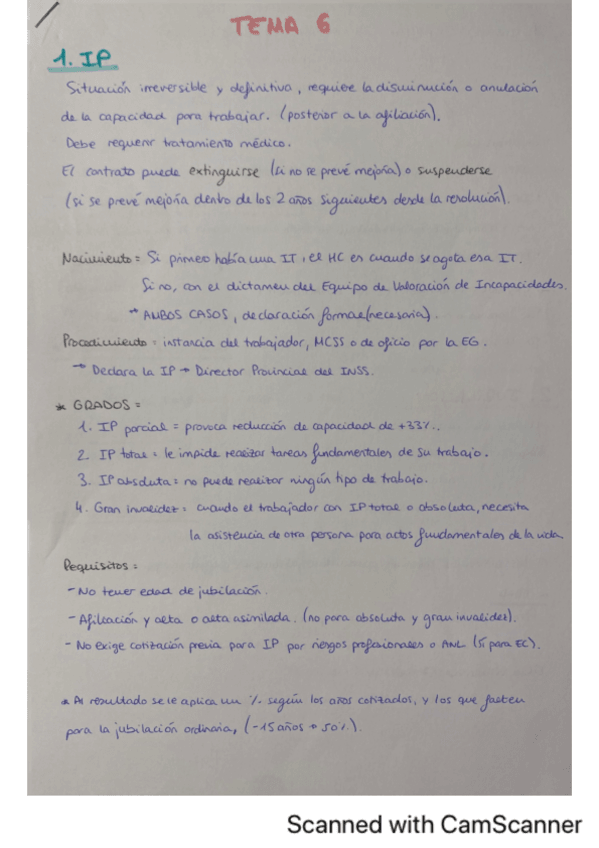 TEMA 6
1. IP
Situación irreversible y definitiva, requiere la disminución o anulación
de la capacidad para trabajar. (posterior a la afiliación).
Debe requerir tratamiento médico.
El contrato puede extinguirse (si no se prevé mejoría) o suspenderse
(si se prevé mejoría dentro de los 2 años siguientes desde la resolución).
Nacimiento = Si primero había una IT, el HC es cuando se agota esa IT.
Si no, con el dictamen del Equipo de Valoración de Incapacidades.
* AMBOS CASOS, declaración formal (necesaria).
Procedimiento = instancia del trabajador, MCSS o de oficio por la EG.
→ Declara la IP → Director Provincial del INSS.
* GRADOS =
1. IP parcial = provoca reducción de capacidad de +33%.
2. IP total = le impide realizar tareas fundamentales de su trabajo.
3. IP absoluta = no puede realizar ningún tipo de trabajo.
4. Gran Invalidez = cuando el trabajador con IP total o absoluta, necesita
la asistencia de otra persona para actos fundamentales de la vida.
Requisitos =
- No tener edad de jubilación.
- Afiliación y alta o alta asimilada. (no para absoluta y gran invalidez).
- No exige cotización previa para IP por riesgos profesionales o ANL (sí para EC).
* Al resultado se le aplica un % según los años cotizados, y los que falten
para la jubilación ordinaria, (-15 años → 50%).
Scanned with CamScanner